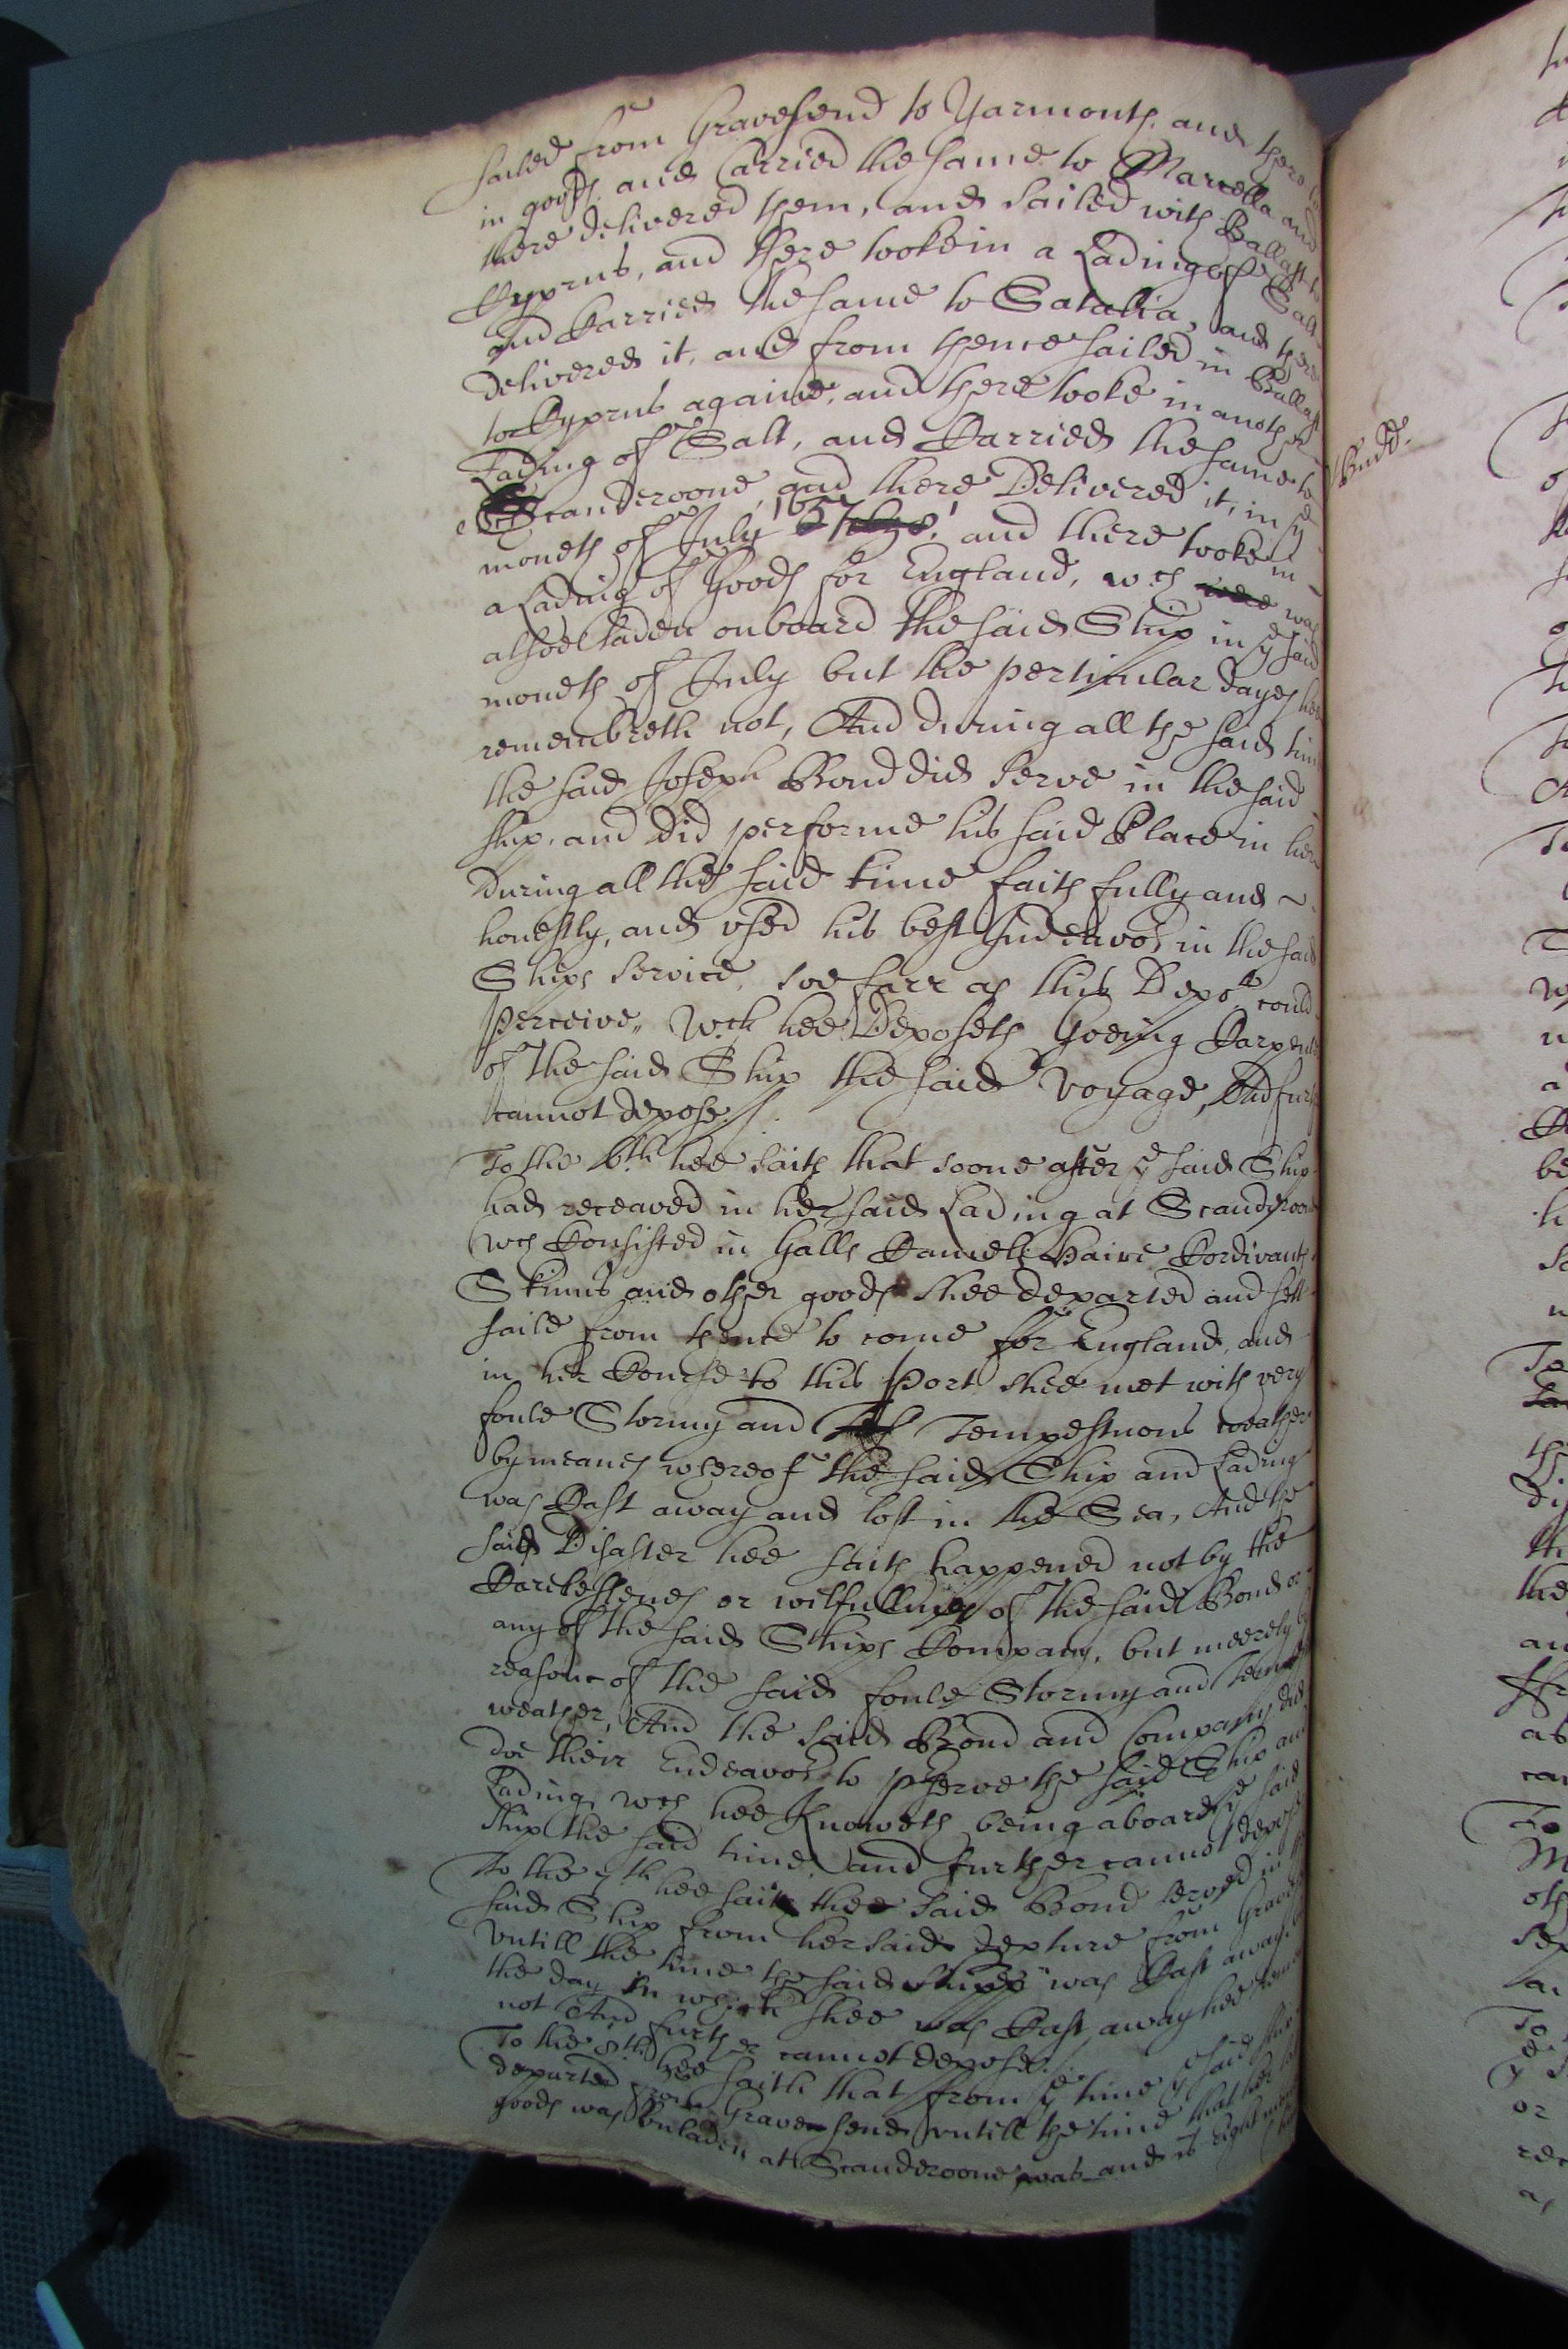 sailed from Gravesend to Yarmouth, and there
in goods, and Carried the same to Marcella and
there delivered them, and sailed with Ballast to
Cyprus, and there tooke in a Lading of Salt
and Carried the same to Satalia, and there
delivered it, and from thence sailed in Ballast
to Cyprus againe, and there tooke in another
Lading of Salt, and Carried the same to
Scanderoone, and there Delivered it, in ye
moneth of July 1657, and there tooke in
a Lading of Goods for England, wch was
alsoe laden onboard the said Ship in ye said
moneth of July but the perticular dayes hee
remembreth not, And during all the said time
the said Joseph Bond did serve in the said
ship, and did performe his said Place in her
during all the said time faithfully and
honestly, and used his best Indeavor in the said
Ships service, soe farr as this Depot could
perceive, Wch hee Deposeth Goeing Carpenter
of the said Ship the said Voyage, And further
cannot depose./.
To the 6th hee saith that soone after ye said Ship
had receaved in her said Lading at Scanderoone
wch Consisted in Galls Camells haire Cordivants
Skinns and other goods shee departed and sett
saile from thence to come for England, and
in her Course to this Port shee met with very
foule Stormy and Tempestuous weather
by meanes whereof the said Ship and Lading
was Cast away and lost in the Sea, And the
said Disaster hee saith happened not by the
Carelessenes or wilfullnes of the said Bond or
any of the said Ships Company, but meerely by
reason of the said foule Stormy and
weather, And the said Bond and Company did
doe their Endeavor to pserve the said Ship and
Lading, wch hee Knoweth being aboard ye said
Ship the said time, and further cannot depose
To the 7th hee saith the said Bond served in the
said Ship from her said depture from
untill the time the said Shipp was Cast away
the day in which shee was Cast away hee
not And further cannot depose./
To the 8th hee saith that from ye time ye said ship
departed from Gravesend untill the time that her
goods was unladen at Scanderoone was and is Eight
Budd.